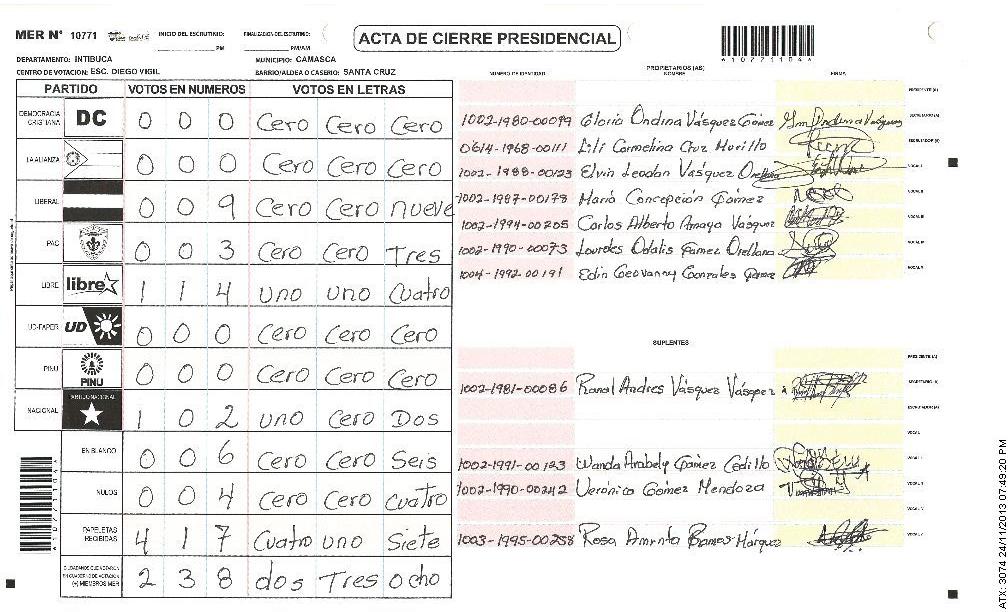 MER N° 10771 INICIO DEL ESCRUTINIO: PM FINALIZACION DEL ESCRUTINIO: PM/AM ACTA DE CIERRE PRESIDENCIAL
DEPARTAMENTO: INTIBUCA MUNICIPIO: CAMASCA
CENTRO DE VOTACION: ESC. DIEGO VIGIL BARRIO/ALDEA O CASERIO: SANTA CRUZ
PARTIDO VOTOS EN NUMEROS VOTOS EN LETRAS
DEMOCRACIA CRISTIANA DC 0 0 0 Cero Cero Cero
LA ALIANZA 0 0 0 Cero Cero Cero
LIBERAL 0 0 9 Cero Cero nueve
PAC 0 0 3 Cero Cero Tres
LIBRE libre 1 1 4 uno uno Cuatro
UD-FAPER UD 0 0 0 Cero Cero Cero
PINU PINU 0 0 0 Cero Cero Cero
NACIONAL PARTIDO NACIONAL 1 0 2 uno Cero Dos
EN BLANCO 0 0 6 Cero Cero Seis
NULOS 0 0 4 Cero Cero Cuatro
PAPELETAS RECIBIDAS 4 1 7 Cuatro uno Siete
CIUDADANOS QUE VOTARON EN CUADERNO DE VOTACION (+) MIEMBROS MER 2 3 8 dos Tres ocho
NUMERO DE IDENTIDAD PROPIETARIOS (AS) NOMBRE FIRMA
PRESIDENTE (A)
1002-1980-00099 Gloria Ondina Vásquez Gómez SECRETARIO (A)
0614-1968-00111 Lili Carmelina Cruz Murillo ESCRUTADOR (A)
1002-1988-00123 Elvin Leodan Vasquez Orellana VOCAL I
1002-1987-00178 Maria Concepción Gómez VOCAL II
1002-1994-00205 Carlos Alberto Amaya Vasquez VOCAL III
1002-1990-00073 Lourdes Odalis Gomez Orellana VOCAL IV
1004-1992-00191 Edin Geovanny Gonzales Gomez VOCAL V
SUPLENTES
PRESIDENTE (A)
1002-1981-00086 Ranal Andres Vásquez Vásquez SECRETARIO (A)
ESCRUTADOR (A)
VOCAL I
1002-1991-00123 Wanda Arabely Gómez Cedillo VOCAL II
1002-1990-00242 Verónica Gómez Mendoza VOCAL III
VOCAL IV
1003-1995-00258 Rosa Aminta Ramos Márquez VOCAL V
ATX: 3074 24/11/2013 07:49:20 PM